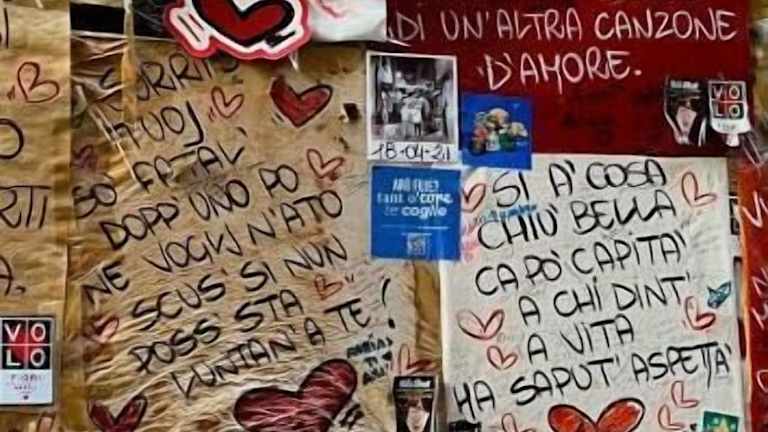 DI UN'ALTRA CANZONE
D'AMORE.
18-04-21
SORRIS
TUOJ
SO' FATAL'
DOPP' UNO PO
NE VOGLJ N'ATO
SCUS' SI NUN
POSS' STA
LUNTAN' A TE!
tant o' core
te coglie
SI A' COSA
CHIU' BELLA
CA PO' CAPITA'
A CHI DINT'
A VITA
HA SAPUT' ASPETTA'
VOLO
VOLO